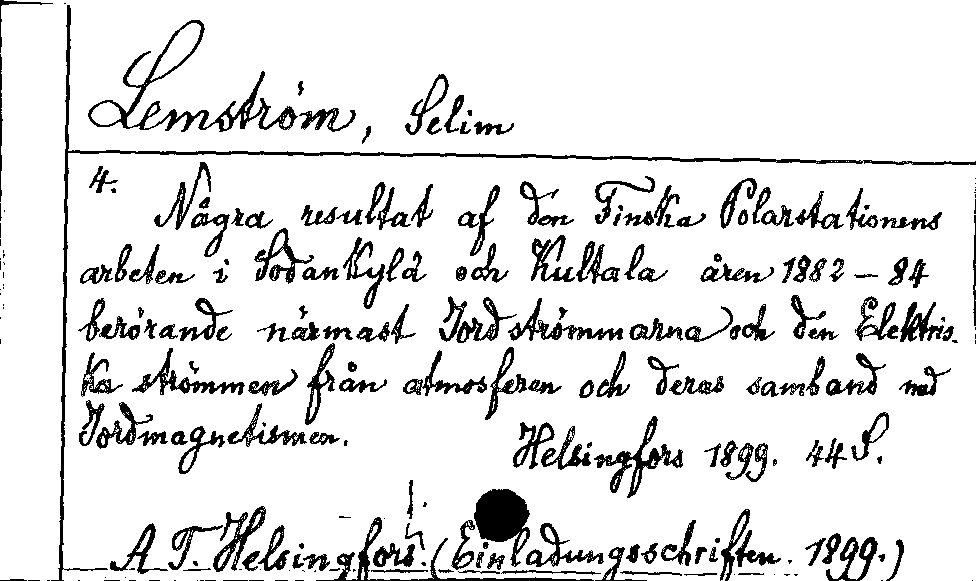 Lemström, Selim
4. Några resultat af den Finska Polarstationens
arbeten i Sodankylä och Kultala åren 1882 - 84
berörande närmast Jordströmmarna och den Elektris-
ka strömmen från atmosferen och deras samband med
Jordmagnetismen.
Helsingfors 1899. 44 S.
A T. Helsingfors. (Einladungsschriften. 1899.)